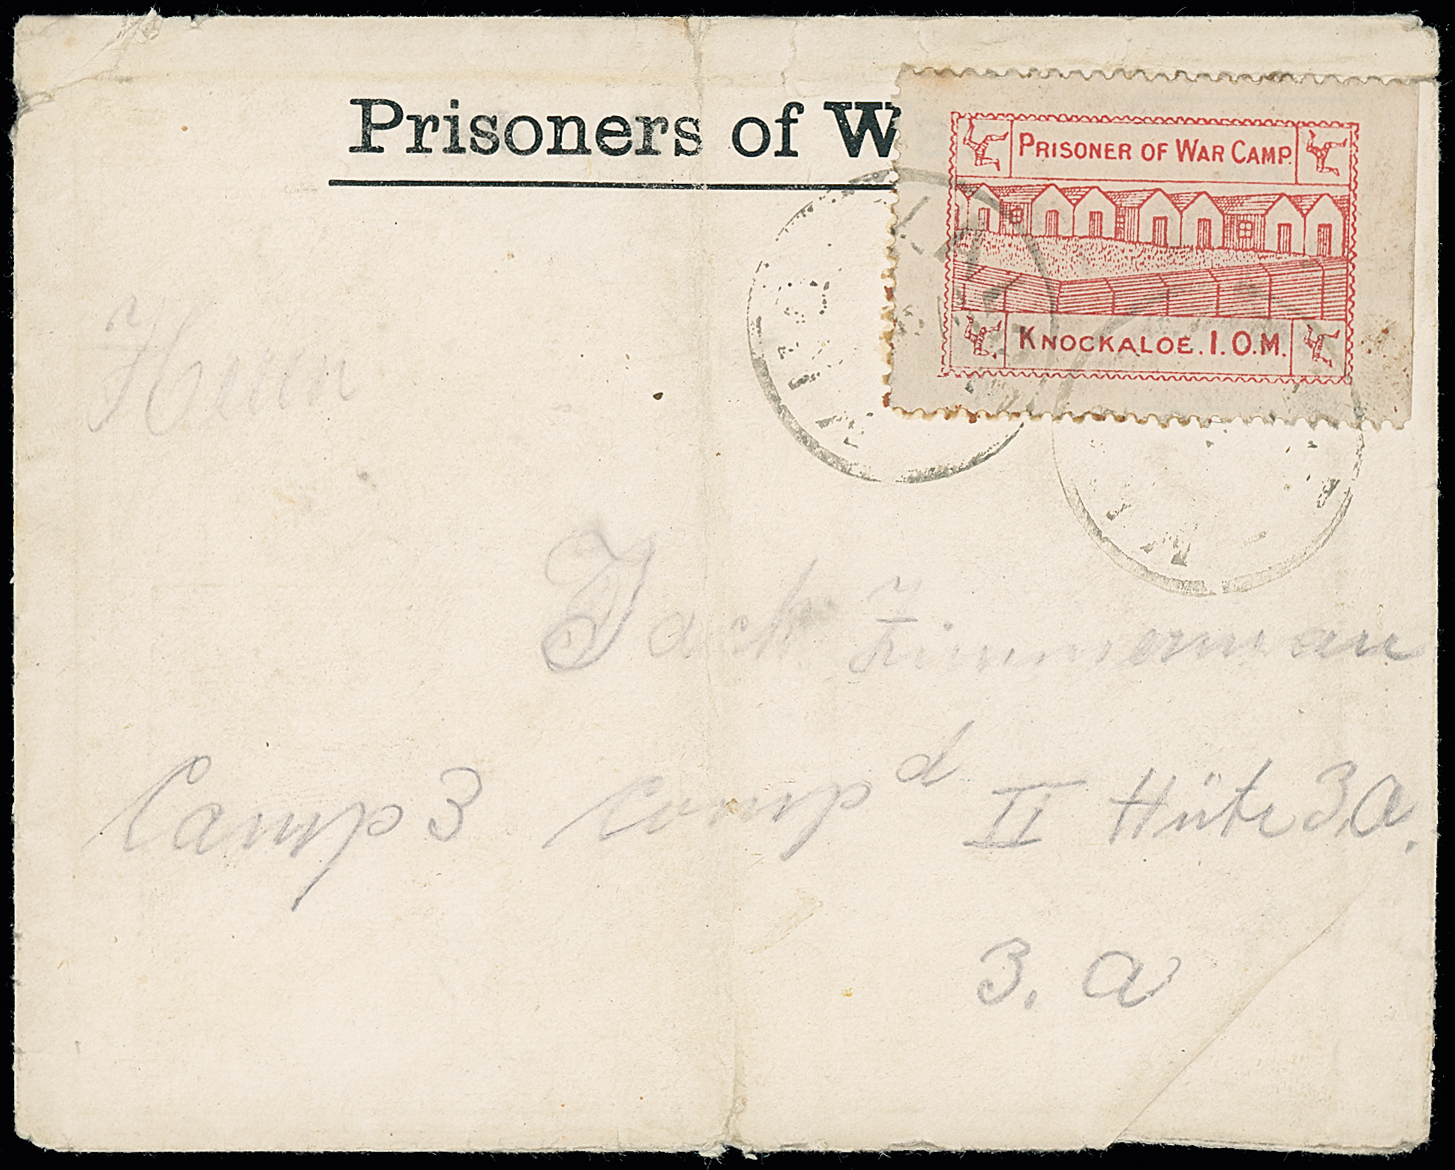 Prisoners of W
PRISONER OF WAR CAMP.
KNOCKALOE. I.O.M.
Herrn
Jack Zimmerman
Camp 3 compd II Hüte 3.a.
3. a